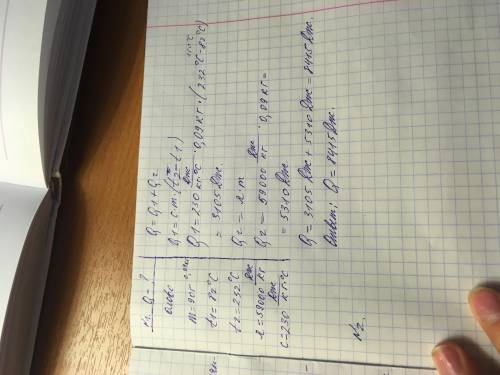 N1. Q = ?
олово
m = 90г 0,09кг
t1 = 82°C
t2 = 232°C
λ = 59000 Дж/кг
c = 230 Дж/кг·°C
Q = Q1 + Q2
Q1 = c·m·(t2 - t1)
Q1 = 230 Дж/кг·°C · 0,09кг · (232°C - 82°C)
= 3105 Дж
Q2 = λ·m
Q2 = 59000 Дж/кг · 0,09кг =
= 5310 Дж
Q = 3105 Дж + 5310 Дж = 8415 Дж.
Ответ: Q = 8415 Дж.
N2.